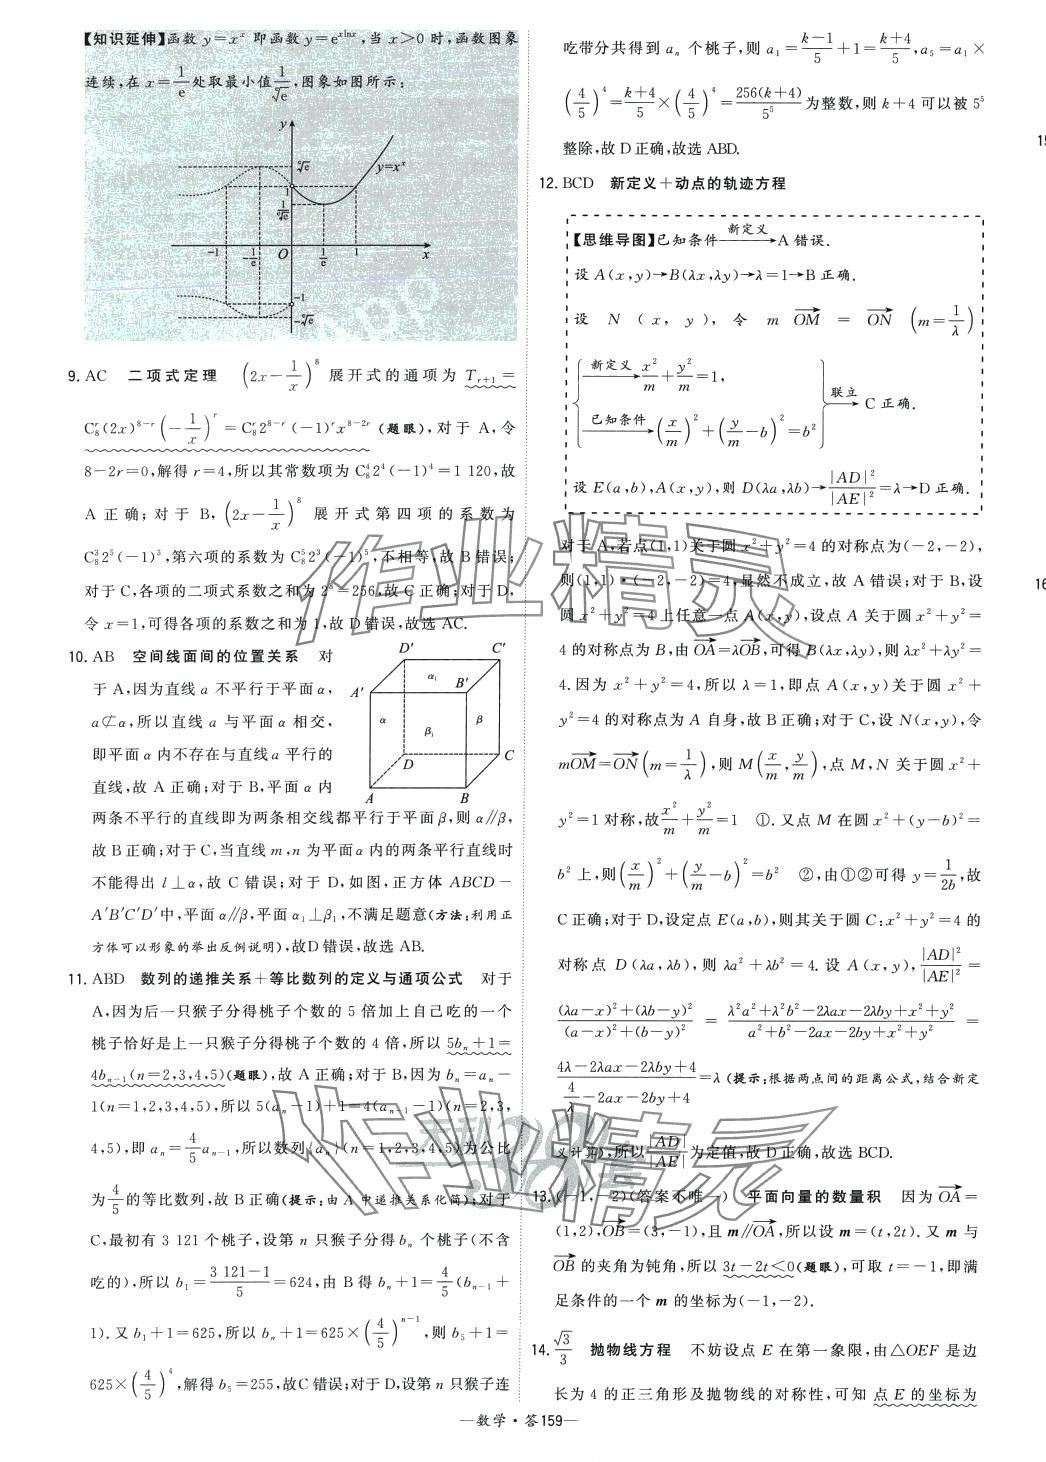 【知识延伸】函数 y=x^x 即函数 y=e^{xlnx},当 x>0 时,函数图象
连续,在 x=1/e 处取最小值 1/ᵉ√e,图象如图所示:
y
ᵉ√e
y=x^x
1
1/ᵉ√e
-1 -1/e O 1/e 1 x
-1
-ᵉ√e
9. AC 二项式定理 (2x-1/x)^8 展开式的通项为 T_{r+1}=
C_8^r(2x)^{8-r}(-1/x)^r=C_8^r2^{8-r}(-1)^rx^{8-2r}(题眼),对于 A,令
8-2r=0,解得 r=4,所以其常数项为 C_8^42^4(-1)^4=1 120,故
A 正确;对于 B,(2x-1/x)^8 展开式第四项的系数为
C_8^32^5(-1)^3,第六项的系数为 C_8^52^3(-1)^5,不相等,故 B 错误;
对于 C,各项的二项式系数之和为 2^8=256,故 C 正确;对于 D,
令 x=1,可得各项的系数之和为 1,故 D 错误,故选 AC.
10. AB 空间线面间的位置关系 对
于 A,因为直线 a 不平行于平面 α,
a⊄α,所以直线 a 与平面 α 相交,
即平面 α 内不存在与直线 a 平行的
直线,故 A 正确;对于 B,平面 α 内
D' C'
α₁
A' B'
α β
β₁
D C
A B
两条不平行的直线即为两条相交线都平行于平面 β,则 α∥β,
故 B 正确;对于 C,当直线 m,n 为平面 α 内的两条平行直线时
不能得出 l⊥α,故 C 错误;对于 D,如图,正方体 ABCD-
A'B'C'D'中,平面 α∥β,平面 α₁⊥β₁,不满足题意(方法:利用正
方体可以形象的举出反例说明),故D错误,故选 AB.
11. ABD 数列的递推关系+等比数列的定义与通项公式 对于
A,因为后一只猴子分得桃子个数的 5 倍加上自己吃的一个
桃子恰好是上一只猴子分得桃子个数的 4 倍,所以 5b_n+1=
4b_{n-1}(n=2,3,4,5)(题眼),故 A 正确;对于 B,因为 b_n=a_n-
1(n=1,2,3,4,5),所以 5(a_n-1)+1=4(a_{n-1}-1)(n=2,3,
4,5),即 a_n=4/5a_{n-1},所以数列{a_n}(n=1,2,3,4,5)为公比
为 4/5 的等比数列,故 B 正确(提示:由 A 中递推关系化简);对于
C,最初有 3 121 个桃子,设第 n 只猴子分得 b_n 个桃子(不含
吃的),所以 b₁=(3 121-1)/5=624,由 B 得 b_n+1=4/5(b_{n-1}+
1).又 b₁+1=625,所以 b_n+1=625×(4/5)^{n-1},则 b₅+1=
625×(4/5)^4,解得 b₅=255,故C 错误;对于 D,设第 n 只猴子连
吃带分共得到 a_n 个桃子,则 a₁=(k-1)/5+1=(k+4)/5,a₅=a₁×
(4/5)^4=(k+4)/5×(4/5)^4=256(k+4)/5^5为整数,则 k+4 可以被 5^5
整除,故 D 正确,故选 ABD.
12. BCD 新定义+动点的轨迹方程
【思维导图】已知条件 新定义→ A 错误.
设 A(x,y)→B(λx,λy)→λ=1→B 正确.
设 N(x,y),令 mOM→=ON→(m=1/λ)
{新定义→ x²/m+y²/m=1,
已知条件→ (x/m)²+(y/m-b)²=b²} 联立→ C 正确.
设 E(a,b),A(x,y),则 D(λa,λb)→|AD|²/|AE|²=λ→D 正确.
对于 A,若点(1,1)关于圆 x²+y²=4 的对称点为(-2,-2),
则(1,1)·(-2,-2)=4,显然不成立,故 A 错误;对于 B,设
圆 x²+y²=4 上任意一点 A(x,y),设点 A 关于圆 x²+y²=
4 的对称点为 B,由 OA→=λOB→,可得 B(λx,λy),则 λx²+λy²=
4.因为 x²+y²=4,所以 λ=1,即点 A(x,y)关于圆 x²+
y²=4 的对称点为 A 自身,故 B 正确;对于 C,设 N(x,y),令
mOM→=ON→(m=1/λ),则 M(x/m,y/m),点 M,N 关于圆 x²+
y²=1 对称,故x²/m+y²/m=1 ①.又点 M 在圆 x²+(y-b)²=
b² 上,则(x/m)²+(y/m-b)²=b² ②,由①②可得 y=1/2b,故
C 正确;对于 D,设定点 E(a,b),则其关于圆 C:x²+y²=4 的
对称点 D(λa,λb),则 λa²+λb²=4.设 A(x,y),|AD|²/|AE|²=
((λa-x)²+(λb-y)²)/((a-x)²+(b-y)²)=(λ²a²+λ²b²-2λax-2λby+x²+y²)/(a²+b²-2ax-2by+x²+y²)=
(4λ-2λax-2λby+4)/(4/λ-2ax-2by+4)=λ(提示:根据两点间的距离公式,结合新定
义计算),所以|AD|/|AE|为定值,故 D 正确,故选 BCD.
13. (-1,-2)(答案不唯一) 平面向量的数量积 因为 OA→=
(1,2),OB→=(3,-1),且 m∥OA→,所以设 m=(t,2t).又 m 与
OB→ 的夹角为钝角,所以 3t-2t<0(题眼),可取 t=-1,即满
足条件的一个 m 的坐标为(-1,-2).
14. √3/3 抛物线方程 不妨设点 E 在第一象限,由△OEF 是边
长为 4 的正三角形及抛物线的对称性,可知 点 E 的坐标为
作业精灵
作业精灵
—数学·答159—